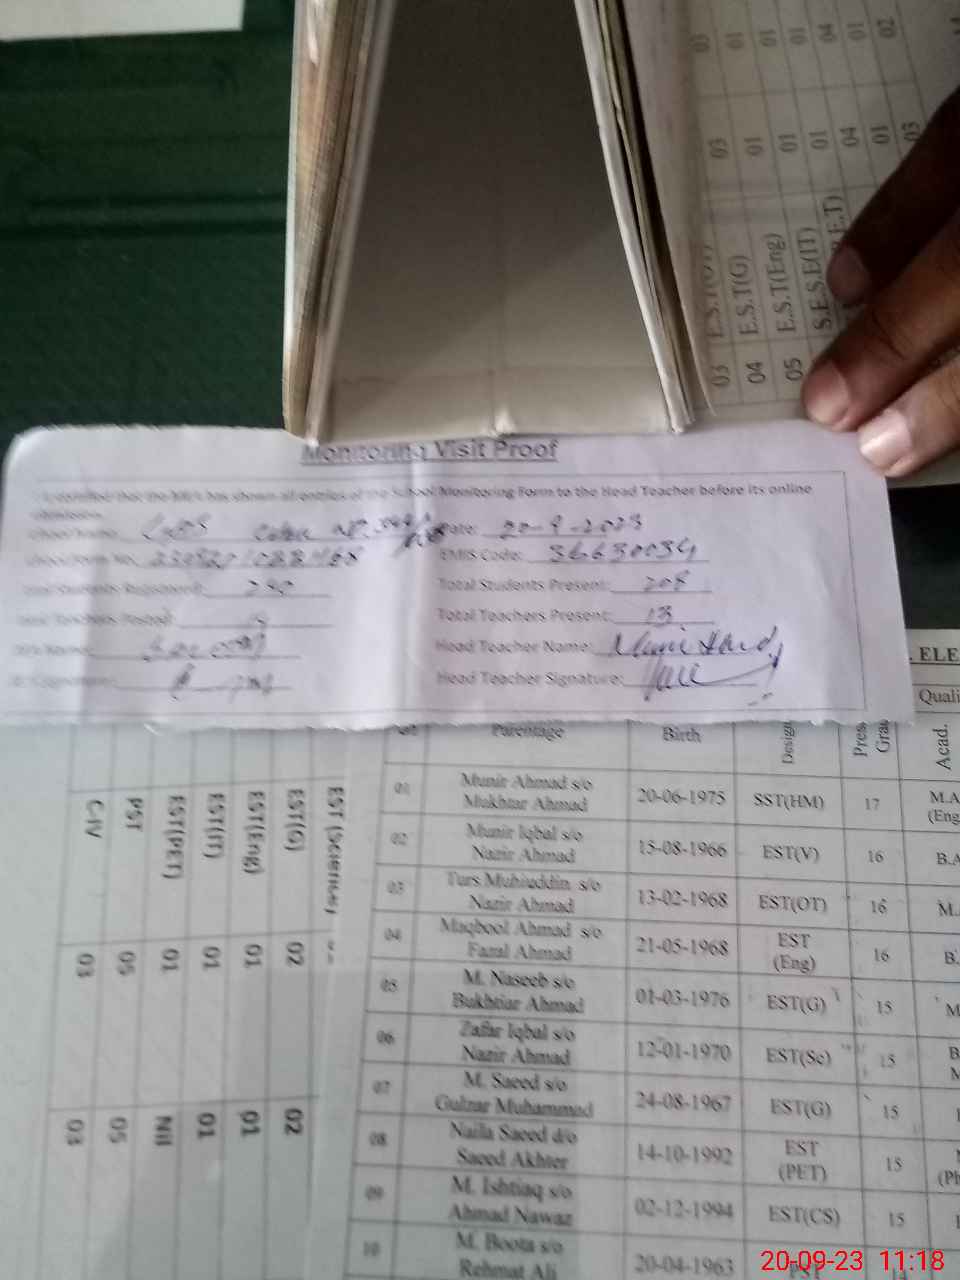 03
01
01
01
04
01
02
03
01
01
01
04
01
03
03 E.S.T(OT)
04 E.S.T(G)
05 E.S.T(Eng)
S.E.S.E(IT)
Monitoring Visit Proof
has shown all entries of the School Monitoring Form to the Head Teacher before its online
School Name: Date: 20-9-2023
School Form No. EMIS Code: 36630034
Total Students Registered: Total Students Present: 208
Total Teachers Posted: Total Teachers Present: 13
Name: Head Teacher Name:
Signature: Head Teacher Signature:
ELE
Quali
Parentage Birth Design Pres Gra Acad.
01 Munir Ahmad s/o Mukhtar Ahmad 20-06-1975 SST(HM) 17 M.A (Eng
02 Munir Iqbal s/o Nazir Ahmad 15-08-1966 EST(V) 16 B.A
03 Turs Muhiuddin s/o Nazir Ahmad 13-02-1968 EST(OT) 16 M.
04 Maqbool Ahmad s/o Fazal Ahmad 21-05-1968 EST (Eng) 16 B.
05 M. Naseeb s/o Bukhtiar Ahmad 01-03-1976 EST(G) 15 M
06 Zafar Iqbal s/o Nazir Ahmad 12-01-1970 EST(Sc) 15 B M
07 M. Saeed s/o Gulzar Muhammad 24-08-1967 EST(G) 15
08 Naila Saeed d/o Saeed Akhter 14-10-1992 EST (PET) 15 (Ph
09 M. Ishtiaq s/o Ahmad Nawaz 02-12-1994 EST(CS) 15
10 M. Boota s/o Rehmat Ali 20-04-1963 PST
EST (Science)
EST(G) 02 02
EST(Eng) 01 01
EST(IT) 01 01
EST(PET) 01 Nil
PST 05 05
C-IV 03 03
20-09-23 11:18